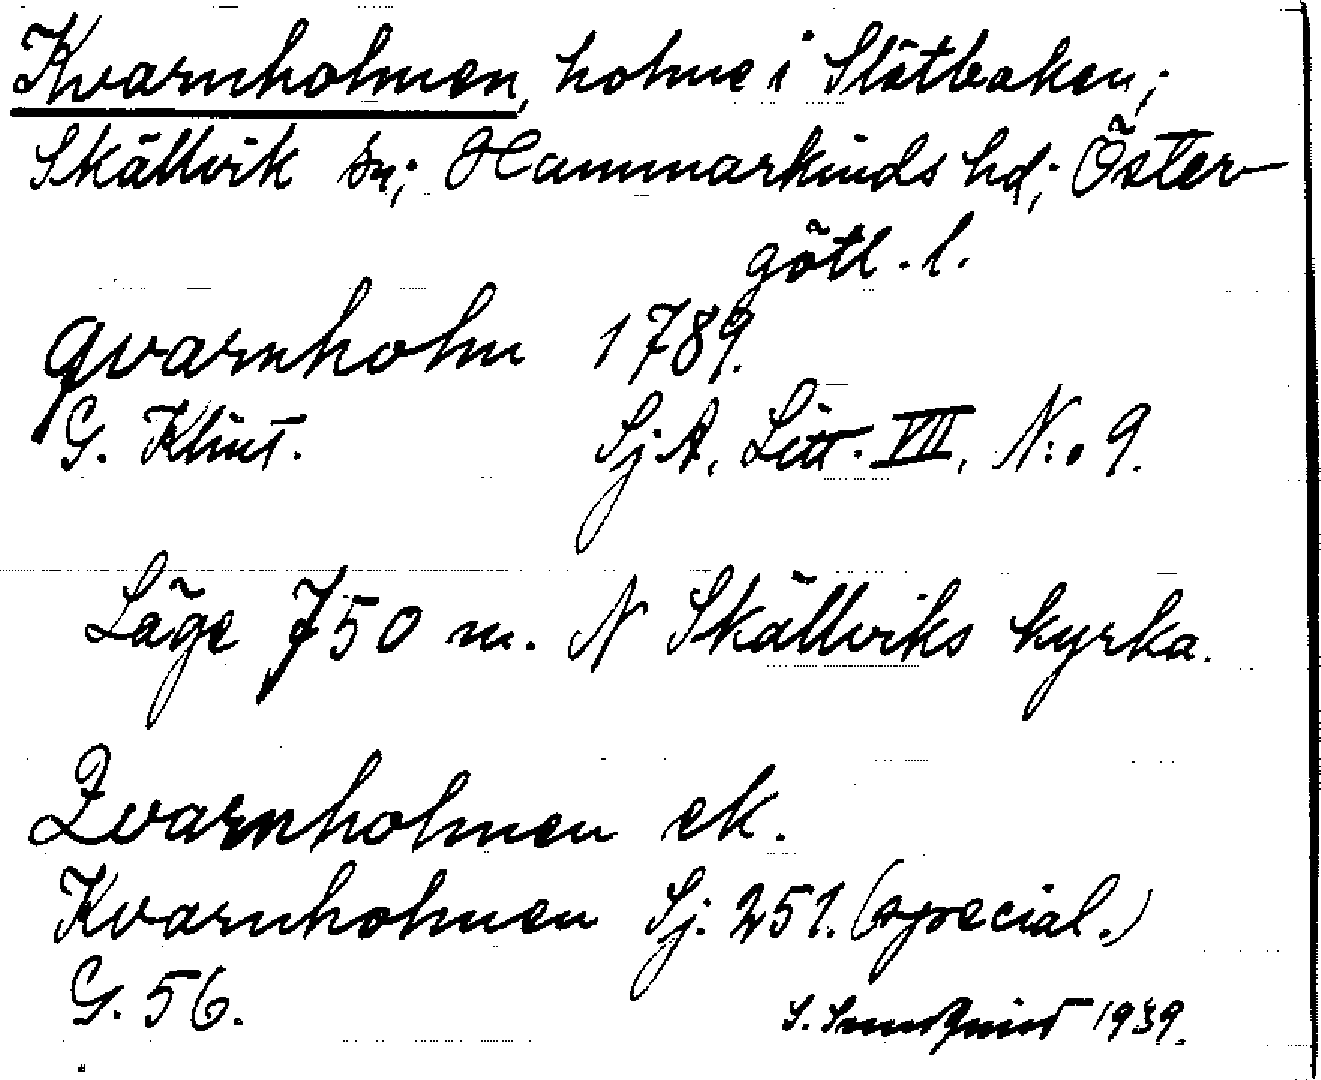 Kvarnholmen, holme i Slätbaken;
Skällvik sn; Hammarkinds hd; Öster-
götl. l.
qvarnholm 1789.
G. Klint. Sj.A. Litt. VII. N:o 9.
Läge 750 m. N Skällviks kyrka.
Qvarnholmen ek.
Kvarnholmen Sj. 251. (special.)
G. 56. S. Sundqvist 1939.